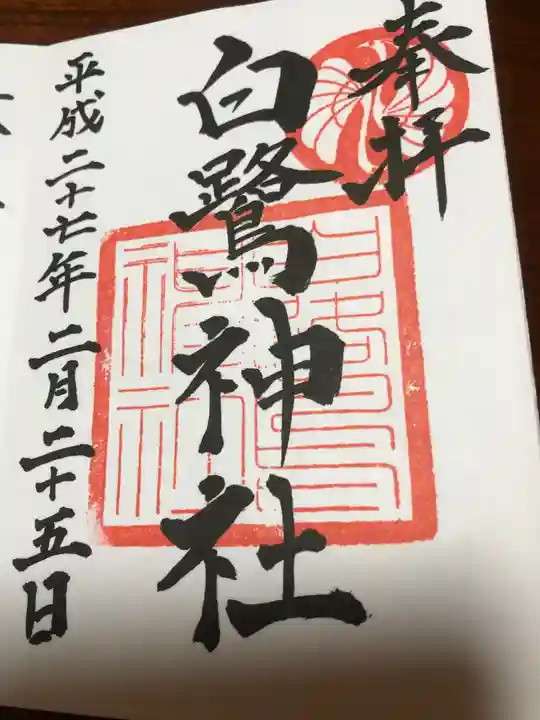 奉拝
白鷺神社
平成二十七年二月二十五日